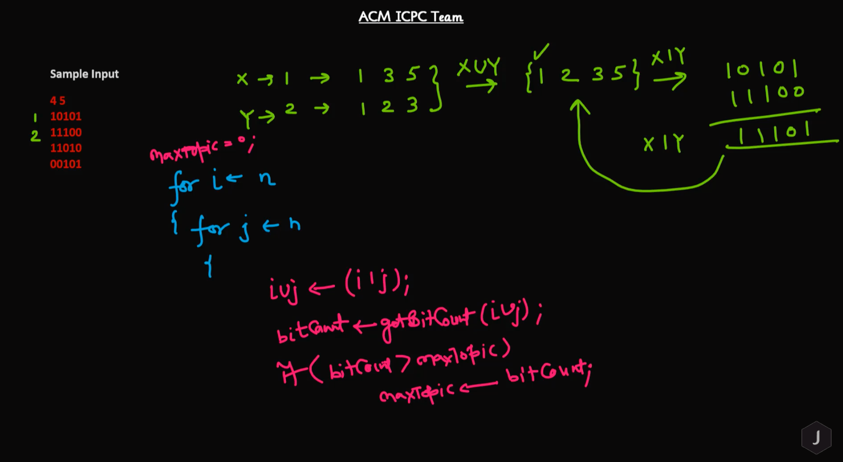 ACM ICPC Team
Sample Input
4 5
1 10101
2 11100
11010
00101
X → 1 → 1 3 5 } X∪Y → {1 2 3 5} X|Y → 10101
Y → 2 → 1 2 3
11100
X|Y 11101
maxTopic = 0;
for i ← n
{ for j ← n
{
i∪j ← (i|j);
bitCount ← getBitCount(i∪j);
If (bitCount > maxTopic)
maxTopic ← bitCount;
J